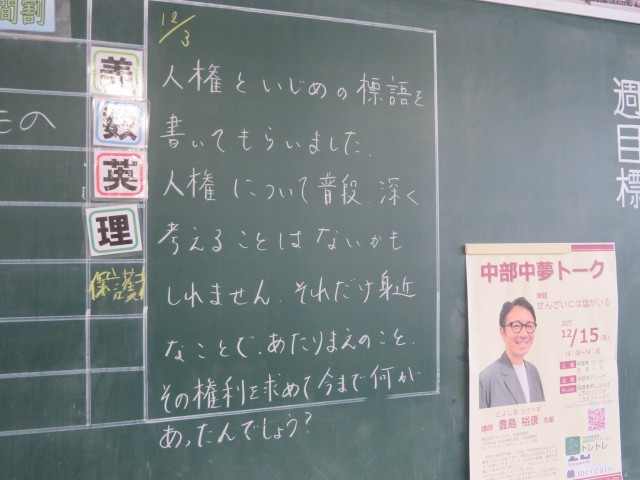 間割
12/3
人権といじめの標語を
書いてもらいました.
人権について普段、深く
考えることはないかも
しれません. それだけ身近
なことで、あたりまえのこと.
その権利を求めて今まで何が
あったんでしょう?
もの
数
英
理
週目標
中部中夢トーク
演題
ぜんざいには塩がいる
2025
12/15
とよしま ひろやす
講師 豊島 裕康 先輩
トレトレ
mercato